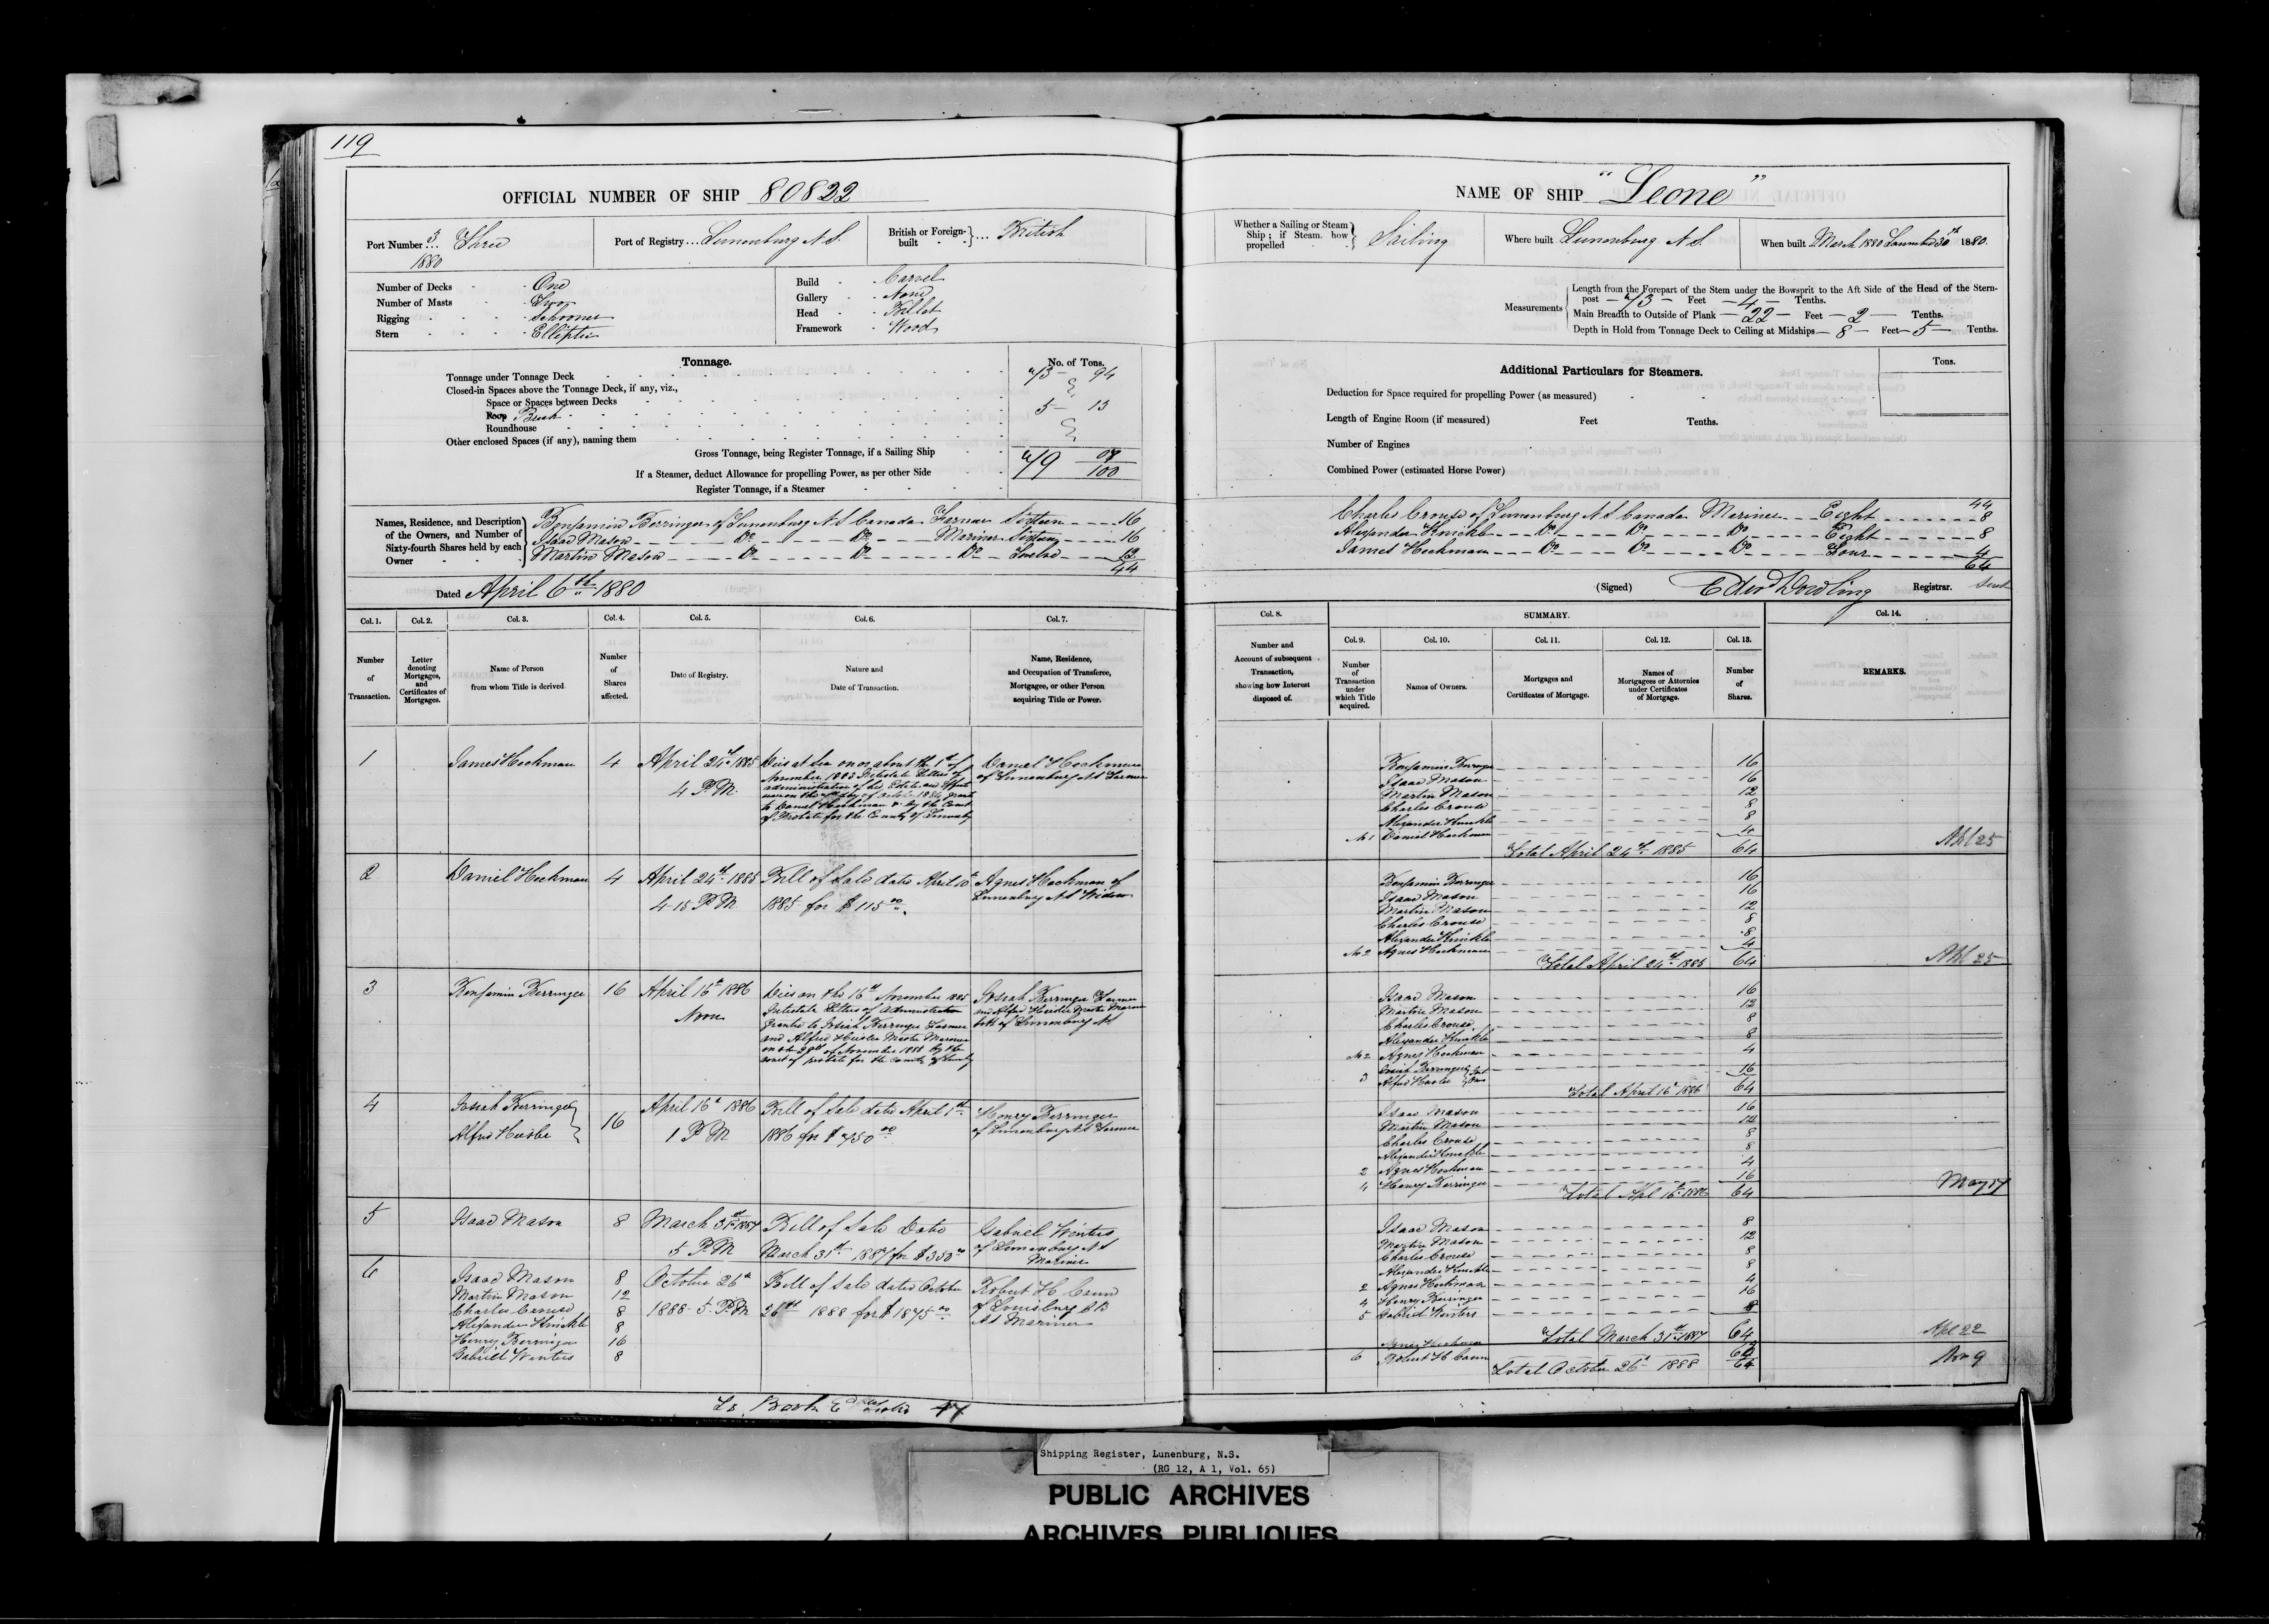 119
OFFICIAL NUMBER OF SHIP 80822
Port Number 3/1880 Three
Port of Registry... Lunenburg N.S.
British or Foreign-built ... British
Number of Decks One
Number of Masts Two
Rigging Schooner
Stern Elliptic
Build Carvel
Gallery None
Head Billet
Framework Wood
Tonnage.
No. of Tons.
Tonnage under Tonnage Deck 73 94
Closed-in Spaces above the Tonnage Deck, if any, viz.,
Space or Spaces between Decks
Poop Break 5 13
Roundhouse
Other enclosed Spaces (if any), naming them
Gross Tonnage, being Register Tonnage, if a Sailing Ship 79 07/100
If a Steamer, deduct Allowance for propelling Power, as per other Side
Register Tonnage, if a Steamer
Names, Residence, and Description of the Owners, and Number of Sixty-fourth Shares held by each Owner
Benjamin Berringer of Lunenburg N S Canada Farmer Sixteen 16
Isaac Mason Do Do Mariner Sixteen 16
Martin Mason Do Do Do Twelve 12
44
Dated April 6th 1880
Col. 1. Col. 2. Col. 3. Col. 4. Col. 5. Col. 6. Col. 7.
Number of Transaction.
Letter denoting Mortgages, and Certificates of Mortgages.
Name of Person from whom Title is derived.
Number of Shares affected.
Date of Registry.
Nature and Date of Transaction.
Name, Residence, and Occupation of Transferee, Mortgagee, or other Person acquiring Title or Power.
1 James Heckman 4 April 24th 1885
4 P.M.
Died at Sea on or about the 1st of
November 1883 Intestate Letters of
administration of his Estate and Effects
October 1884 granted
to Daniel Heckman by the Court
of Probate for the County of Lunenburg
Daniel Heckman
of Lunenburg N S Farmer
2 Daniel Heckman 4 April 24th 1885
4-15 P M
Bill of Sale dated April 10th
1885 for $115 00
Agnes Heckman of
Lunenburg N S Widow
3 Benjamin Berringer 16 April 16th 1886
Noon
Died on the 16th November 1885
Intestate Letters of Administration
granted to Josiah Berringer Farmer
and Alfred Hiesler Master Mariner
of November 1885 by the
court of probate for the County of Lunenburg
Josiah Berringer Farmer
and Alfred Hiesler Master Mariner
both of Lunenburg N S
4 Josiah Berringer
Alfred Hiesler
16 April 16th 1886
1 P M
Bill of Sale dated April 1st
1886 for $750 00
Henry Berringer
of Lunenburg N S Farmer
5 Isaac Mason 8 March 31st 1887
5 P M
Bill of Sale Dated
March 31st 1887 for $350 00
Gabriel Winters
of Lunenburg N S
Mariner
6 Isaac Mason 8
Martin Mason 12
Charles Crouse 8
Alexander Knickle 8
Henry Berringer 16
Gabriel Winters 8
October 26th
1888 5 P.M
Bill of Sale dated October
26th 1888 for $1875 00
Robert H Cann
of Louisburg C B
N S Mariner
NAME OF SHIP "Leone"
Whether a Sailing or Steam Ship; if Steam, how propelled Sailing
Where built Lunenburg N.S.
When built March 1880 Launched 30th 1880.
Measurements
Length from the Forepart of the Stem under the Bowsprit to the Aft Side of the Head of the Stern-
post 73 Feet 4 Tenths.
Main Breadth to Outside of Plank 22 Feet 2 Tenths.
Depth in Hold from Tonnage Deck to Ceiling at Midships 8 Feet 5 Tenths.
Additional Particulars for Steamers.
Tons.
Deduction for Space required for propelling Power (as measured)
Length of Engine Room (if measured) Feet Tenths.
Number of Engines
Combined Power (estimated Horse Power)
44
Charles Crouse of Lunenburg N S Canada Mariner Eight 8
Alexander Knickle Do Do Do Eight 8
James Heckman Do Do Do Four 4
64
(Signed) Edwd Dowling Registrar.
Col. 8. SUMMARY. Col. 14.
Col. 9. Col. 10. Col. 11. Col. 12. Col. 13.
Number and Account of subsequent Transaction, showing how Interest disposed of.
Number of Transaction under which Title acquired.
Names of Owners.
Mortgages and Certificates of Mortgage.
Names of Mortgagees or Attornies under Certificates of Mortgage.
Number of Shares.
REMARKS.
Benjamin Berringer 16
Isaac Mason 16
Martin Mason 12
Charles Crouse 8
Alexander Knickle 8
No 1 Daniel Heckman 4
Total April 24th 1885 64
Apl 25
Benjamin Berringer 16
Isaac Mason 16
Martin Mason 12
Charles Crouse 8
Alexander Knickle 8
No 2 Agnes Heckman 4
Total April 24th 1885 64
Apl 25
Isaac Mason 16
Martin Mason 12
Charles Crouse 8
Alexander Knickle 8
No 2 Agnes Heckman 4
3 Josiah Berringer
Alfred Hiesler 16
Total April 16th 1886 64
Isaac Mason 16
Martin Mason 12
Charles Crouse 8
Alexander Knickle 8
2 Agnes Heckman 4
4 Henry Berringer 16
Total Apl 16th 1886 64
May 17
Isaac Mason 8
Martin Mason 12
Charles Crouse 8
Alexander Knickle 8
2 Agnes Heckman 4
4 Henry Berringer 16
5 Gabriel Winters 8
Total March 31st 1887 64
Apl 22
Agnes Heckman 4
6 Robert H Cann 60
Total October 26th 1888 64
Nov 9
Shipping Register, Lunenburg, N.S.
(RG 12, A 1, Vol. 65)
PUBLIC ARCHIVES
ARCHIVES PUBLIQUES